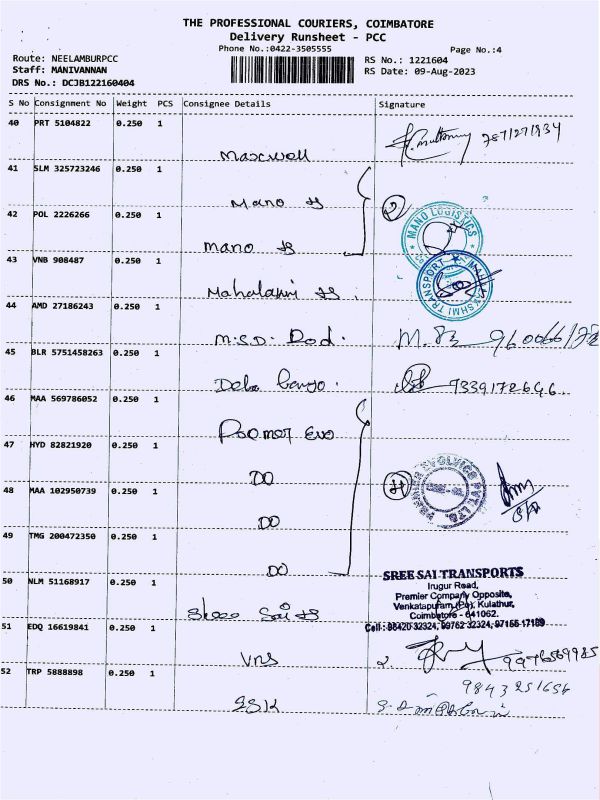 THE PROFESSIONAL COURIERS, COIMBATORE
Delivery Runsheet - PCC
Phone No.:0422-3505555
Page No.:4
Route: NEELAMBURPCC
RS No.: 1221604
Staff: MANIVANNAN
RS Date: 09-Aug-2023
DRS No.: DCJB122160404
S No Consignment No Weight PCS Consignee Details Signature
40 PRT 5104822 0.250 1
Maxwell 7871271934
41 SLM 325723246 0.250 1
Mano
42 POL 2226266 0.250 1
mano
2
MANO LOGISTICS
43 VNB 908487 0.250 1
44 AMD 27186243 0.250 1
M.S.D.
45 BLR 5751458263 0.250 1
7339172646
46 MAA 569786052 0.250 1
47 HYD 82821920 0.250 1
DO
48 MAA 102950739 0.250 1
DO
49 TMG 200472350 0.250 1
DO
SREE SAI TRANSPORTS
Irugur Road,
Premier Company Opposite,
Venkatapuram (Po), Kulathur,
Coimbatore - 641062.
Cell : 98420 32324, 99762 32324, 97156 17189
50 NLM 51168917 0.250 1
51 EDQ 16619841 0.250 1
VNS
52 TRP 5888898 0.250 1
9843251656
SSK